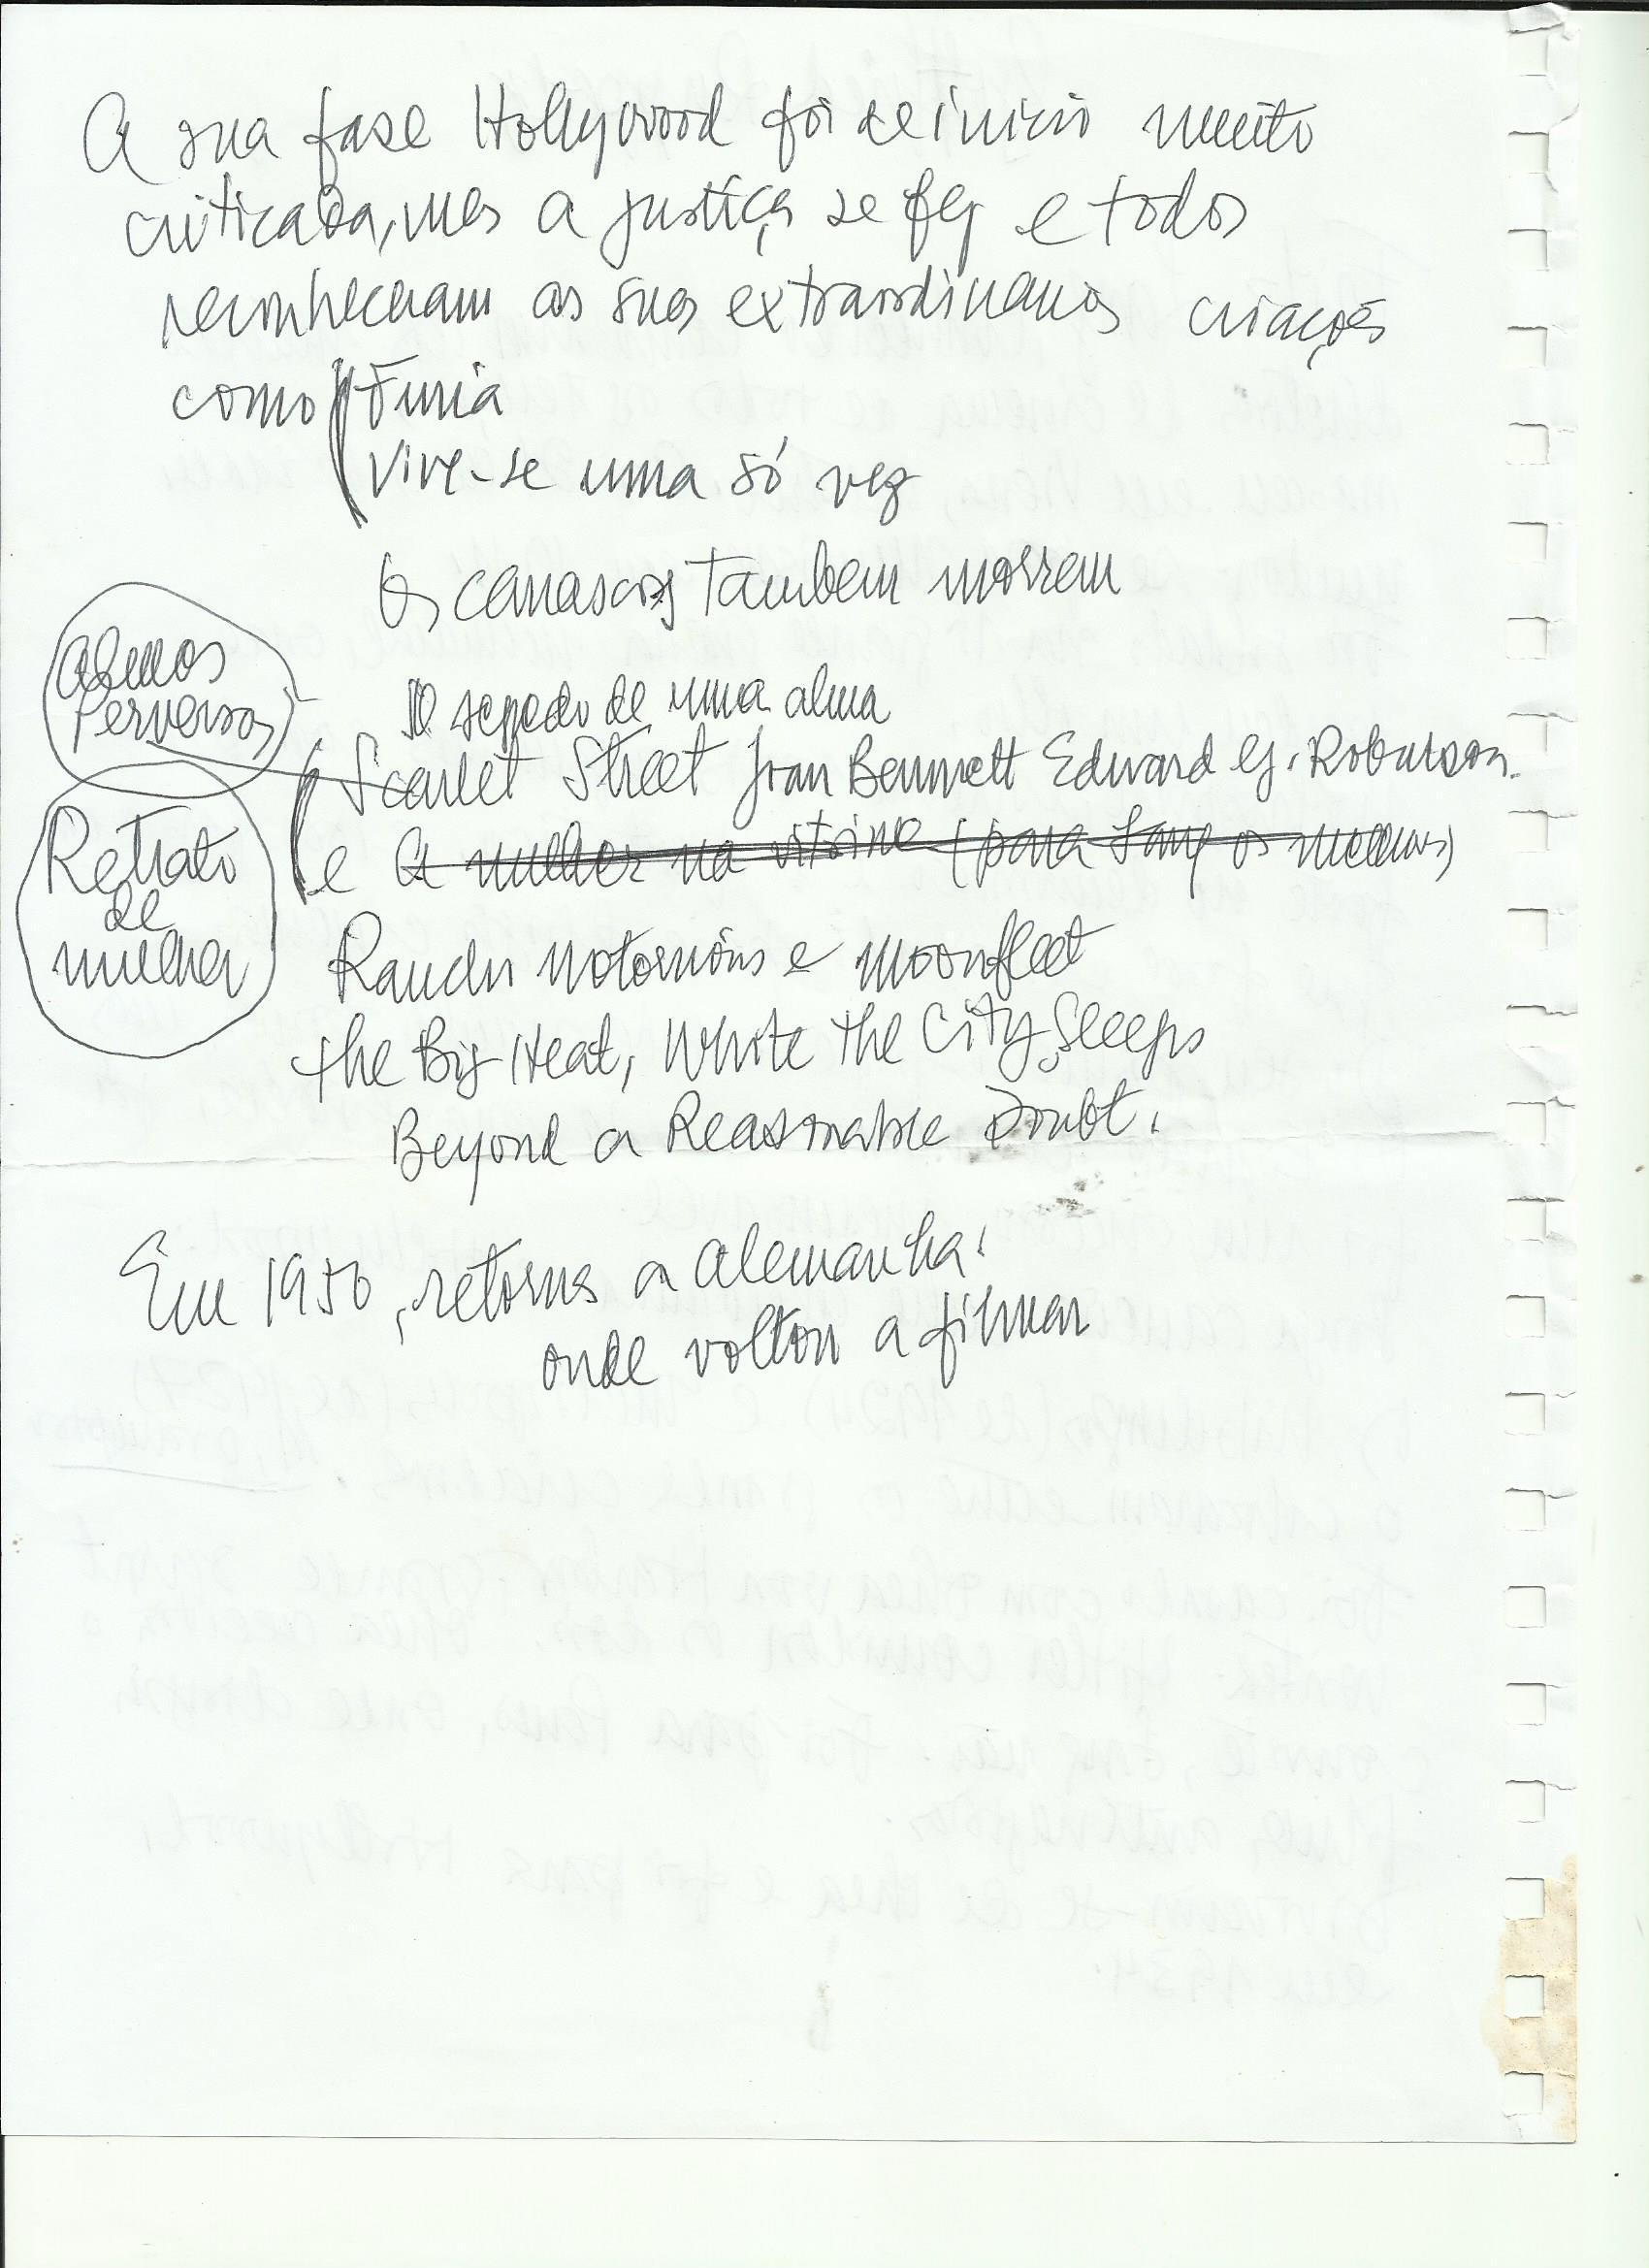 A sua fase Hollywood foi de inicio muito
criticada, mas a justiça se fez e todos
reconheceram as suas extraordinarias criações
como Furia
Vive-se uma só vez
Os carrascos tambem morrem
Almas
Perversas
O segredo de uma alma
Scarlet Street Joan Bennett Edward G. Robinson.
e A mulher na vitrine (para Lang os melhores)
Retrato
de
mulher
Rancho Notorious e Moonfleet
The Big Heat, While the City Sleeps
Beyond a Reasonable Doubt.
Em 1950, retorna a Alemanha.
onde voltou a filmar